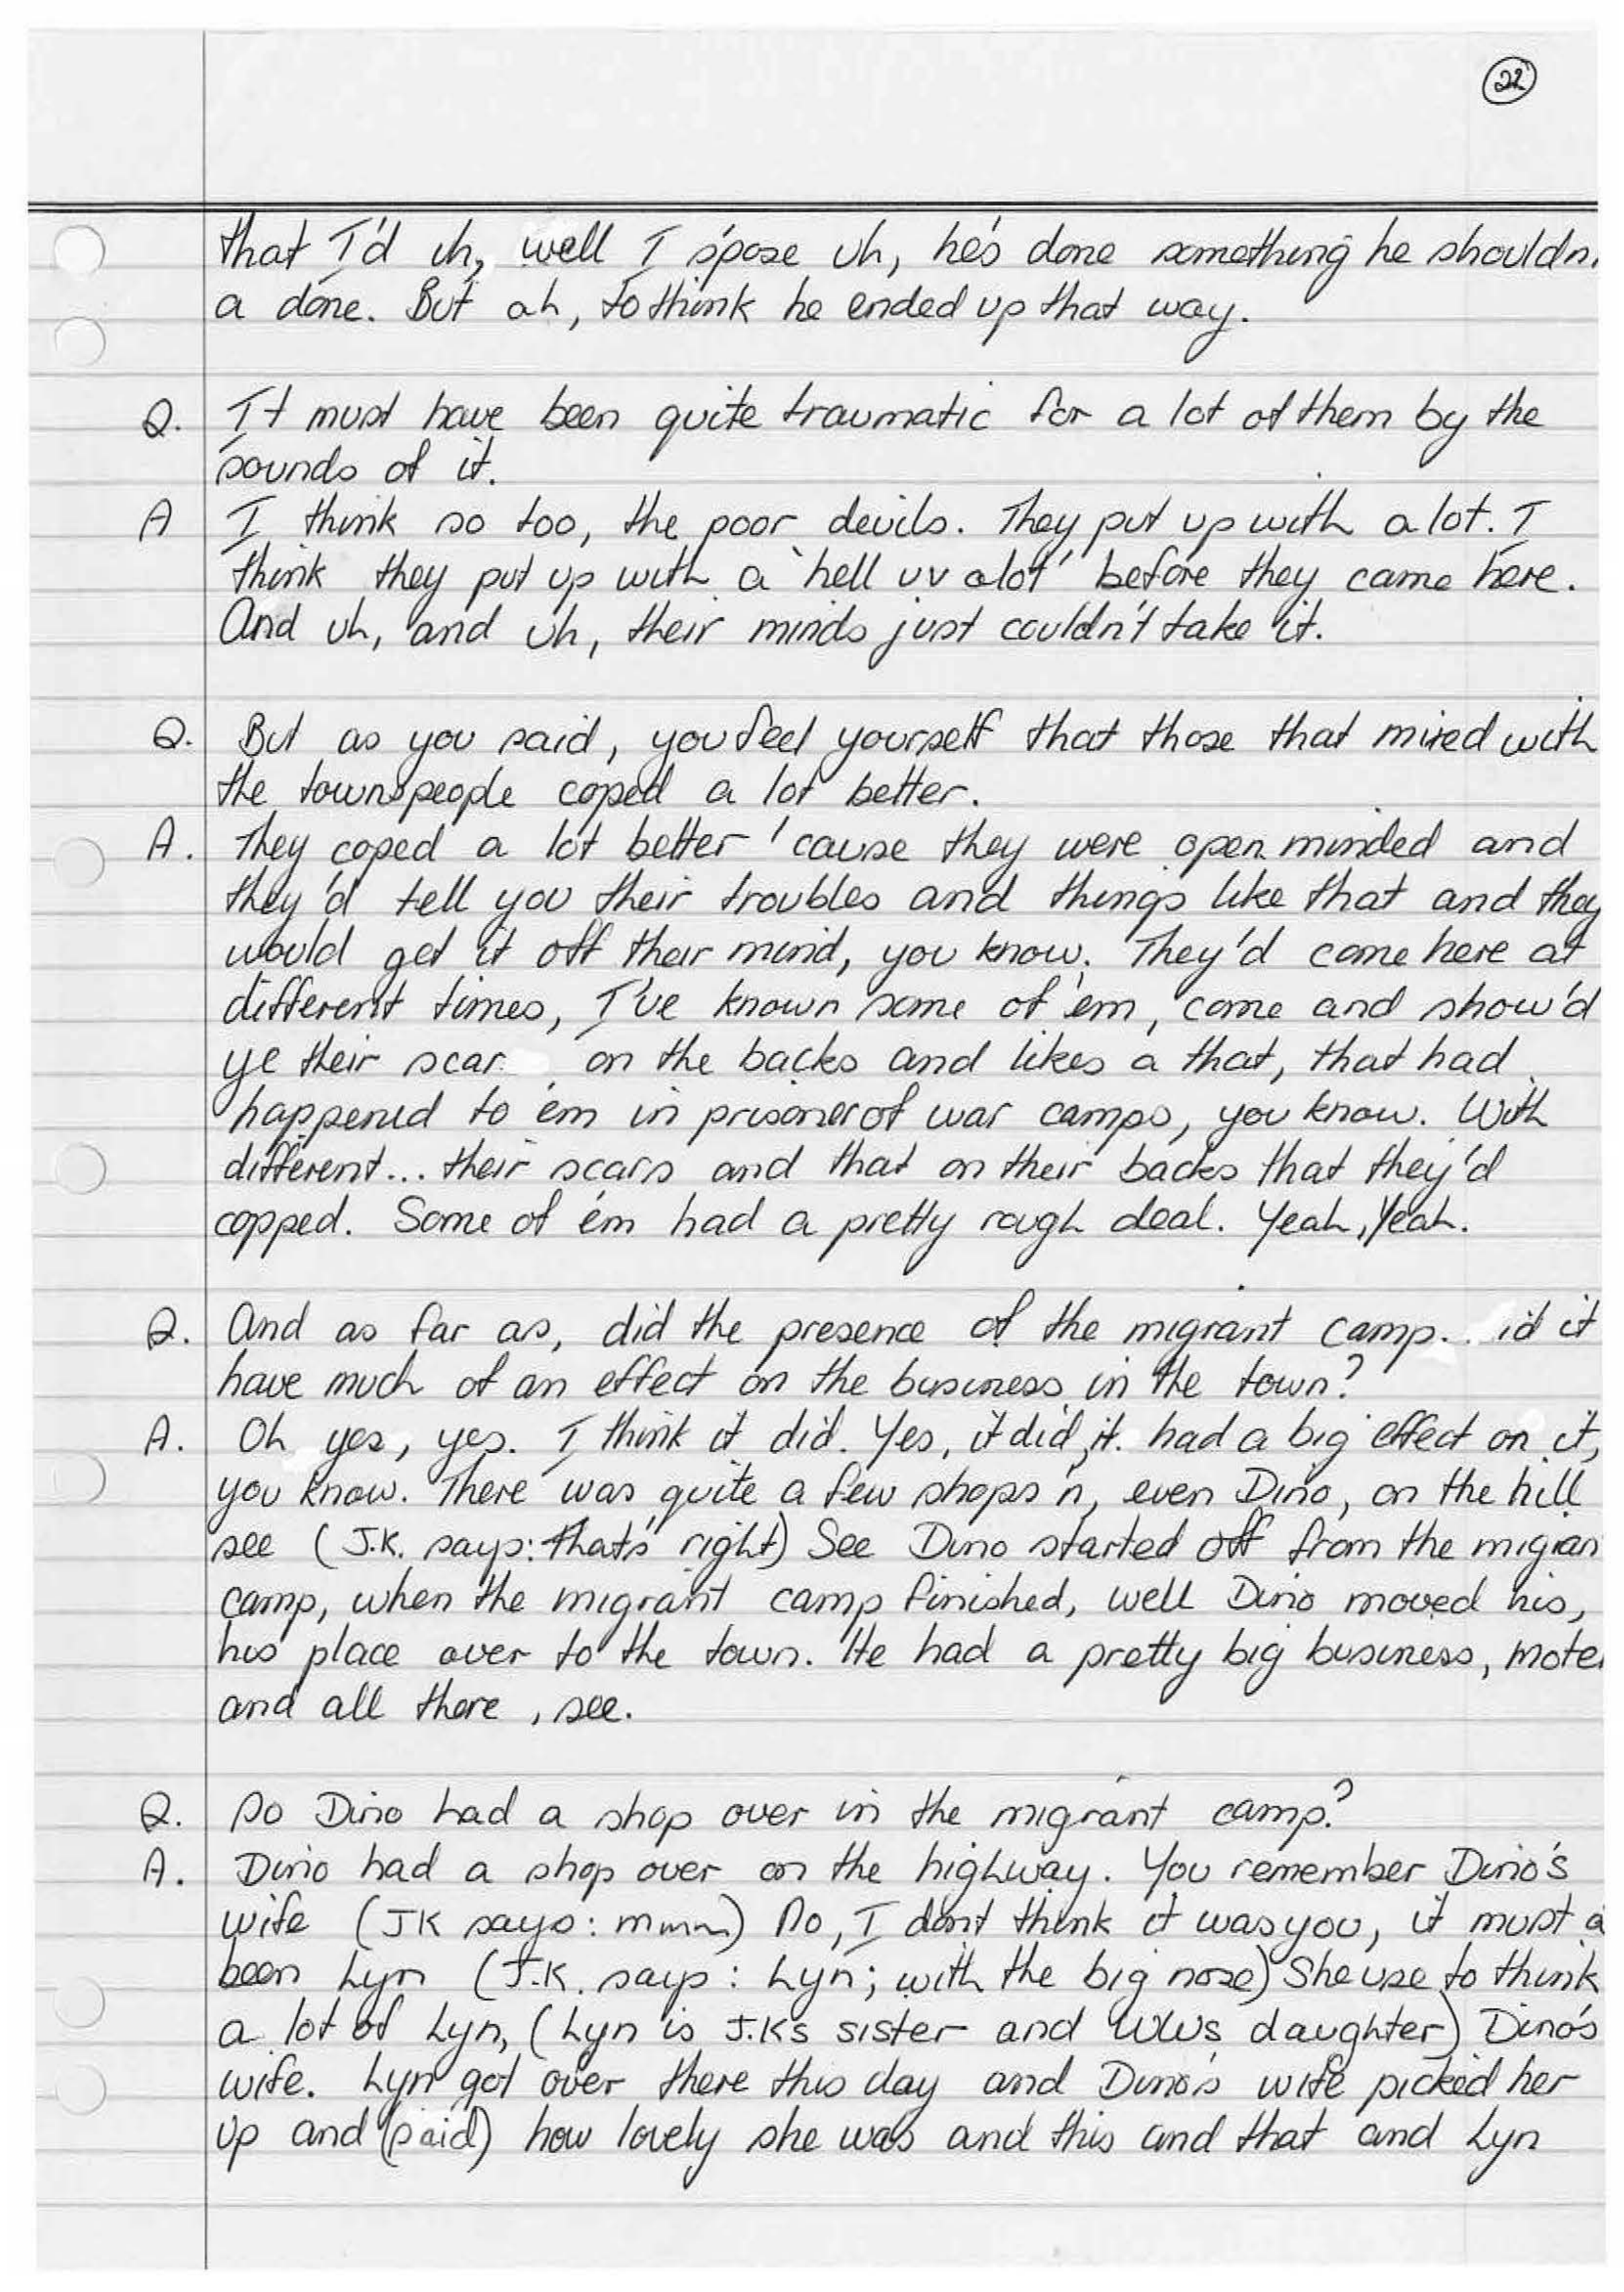 22
that I'd uh, well I s'pose uh, he's done something he shouldn
a done. But ah, to think he ended up that way.
Q. It must have been quite traumatic for a lot of them by the
sounds of it.
A I think so too, the poor devils. They put up with a lot. I
think they put up with a 'hell uv alot' before they came here.
And uh, and uh, their minds just couldn't take it.
Q. But as you said, you feel yourself that those that mixed with
the townspeople coped a lot better.
A. They coped a lot better 'cause they were open minded and
they'd tell you their troubles and things like that and they
would get it off their mind, you know. They'd come here at
different times, I've known some of 'em, come and show'd
ye their scar on the backs and likes a that, that had
happened to 'em in prisoner of war camps, you know. With
different... their scars and that on their backs that they'd
copped. Some of 'em had a pretty rough deal. Yeah, Yeah.
Q. And as far as, did the presence of the migrant camp.. id it
have much of an effect on the business in the town?
A. Oh yes, yes. I think it did. Yes, it did, it had a big effect on it,
you know. There was quite a few shops 'n, even Dino, on the hill
see (J.K. says: that's right) See Dino started off from the migran
camp, when the migrant camp finished, well Dino moved his,
his place over to the town. He had a pretty big business, mote
and all there, see.
Q. So Dino had a shop over in the migrant camp?
A. Dino had a shop over on the highway. You remember Dino's
wife (JK says: mmm) No, I don't think it was you, it must a
been Lyn (J.K. says: Lyn; with the big nose) She use to think
a lot of Lyn, (Lyn is J.K's sister and WW's daughter) Dino's
wife. Lyn got over there this day and Dino's wife picked her
up and (said) how lovely she was and this and that and Lyn